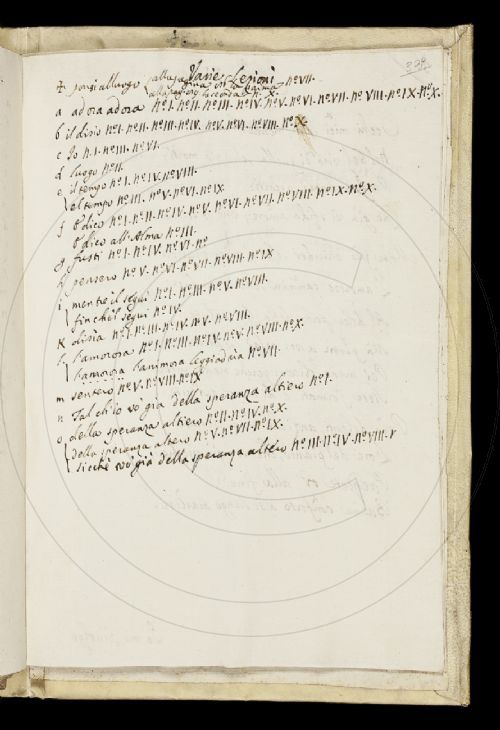 Varie Lezioni
a adora adora Nº.I. Nº.II. Nº.III. Nº.IV. Nº.V. Nº.VI. Nº.VII. Nº.VIII. Nº.IX. Nº.X.
b il disio Nº.I. Nº.II. Nº.III. Nº.IV. Nº.V. Nº.VI. Nº.VIII. Nº.X.
c Io N.I. Nº.III. Nº.VI.
d luogo Nº.II.
e il tempo Nº.I. Nº.IV. Nº.VIII.
el tempo Nº.III. Nº.V. Nº.VI. Nº.IX
f E dico Nº.I. Nº.II. Nº.IV. Nº.V. Nº.VI. Nº.VII. Nº.VIII. Nº.IX. Nº.X.
E dico all'Alma Nº.III.
g fusti Nº.I. Nº.IV. Nº.VI. Nº
h pensero Nº.V. Nº.VI. Nº.VII. Nº.VIII. Nº.IX
i mentre il segui Nº.I. Nº.III. Nº.V. Nº.VIII.
finche'l segui Nº.IV.
K disia Nº.I. Nº.III. Nº.IV. Nº.V. Nº.VIII.
l l'amorosa Nº.I. Nº.III. Nº.IV. Nº.V. Nº.VIII. Nº.X.
leggiadria Nº.VII.
m sentero Nº.V. Nº.VIII. Nº.IX
n Tal ch'io vo già della speranza altiero Nº.I.
o della speranza altiero Nº.II. Nº.IV. Nº.X.
della speranza altero Nº.V. Nº.VII. Nº.IX.
sicchè vo già della speranza altiero Nº.III. Nº.IV. Nº.VIII.